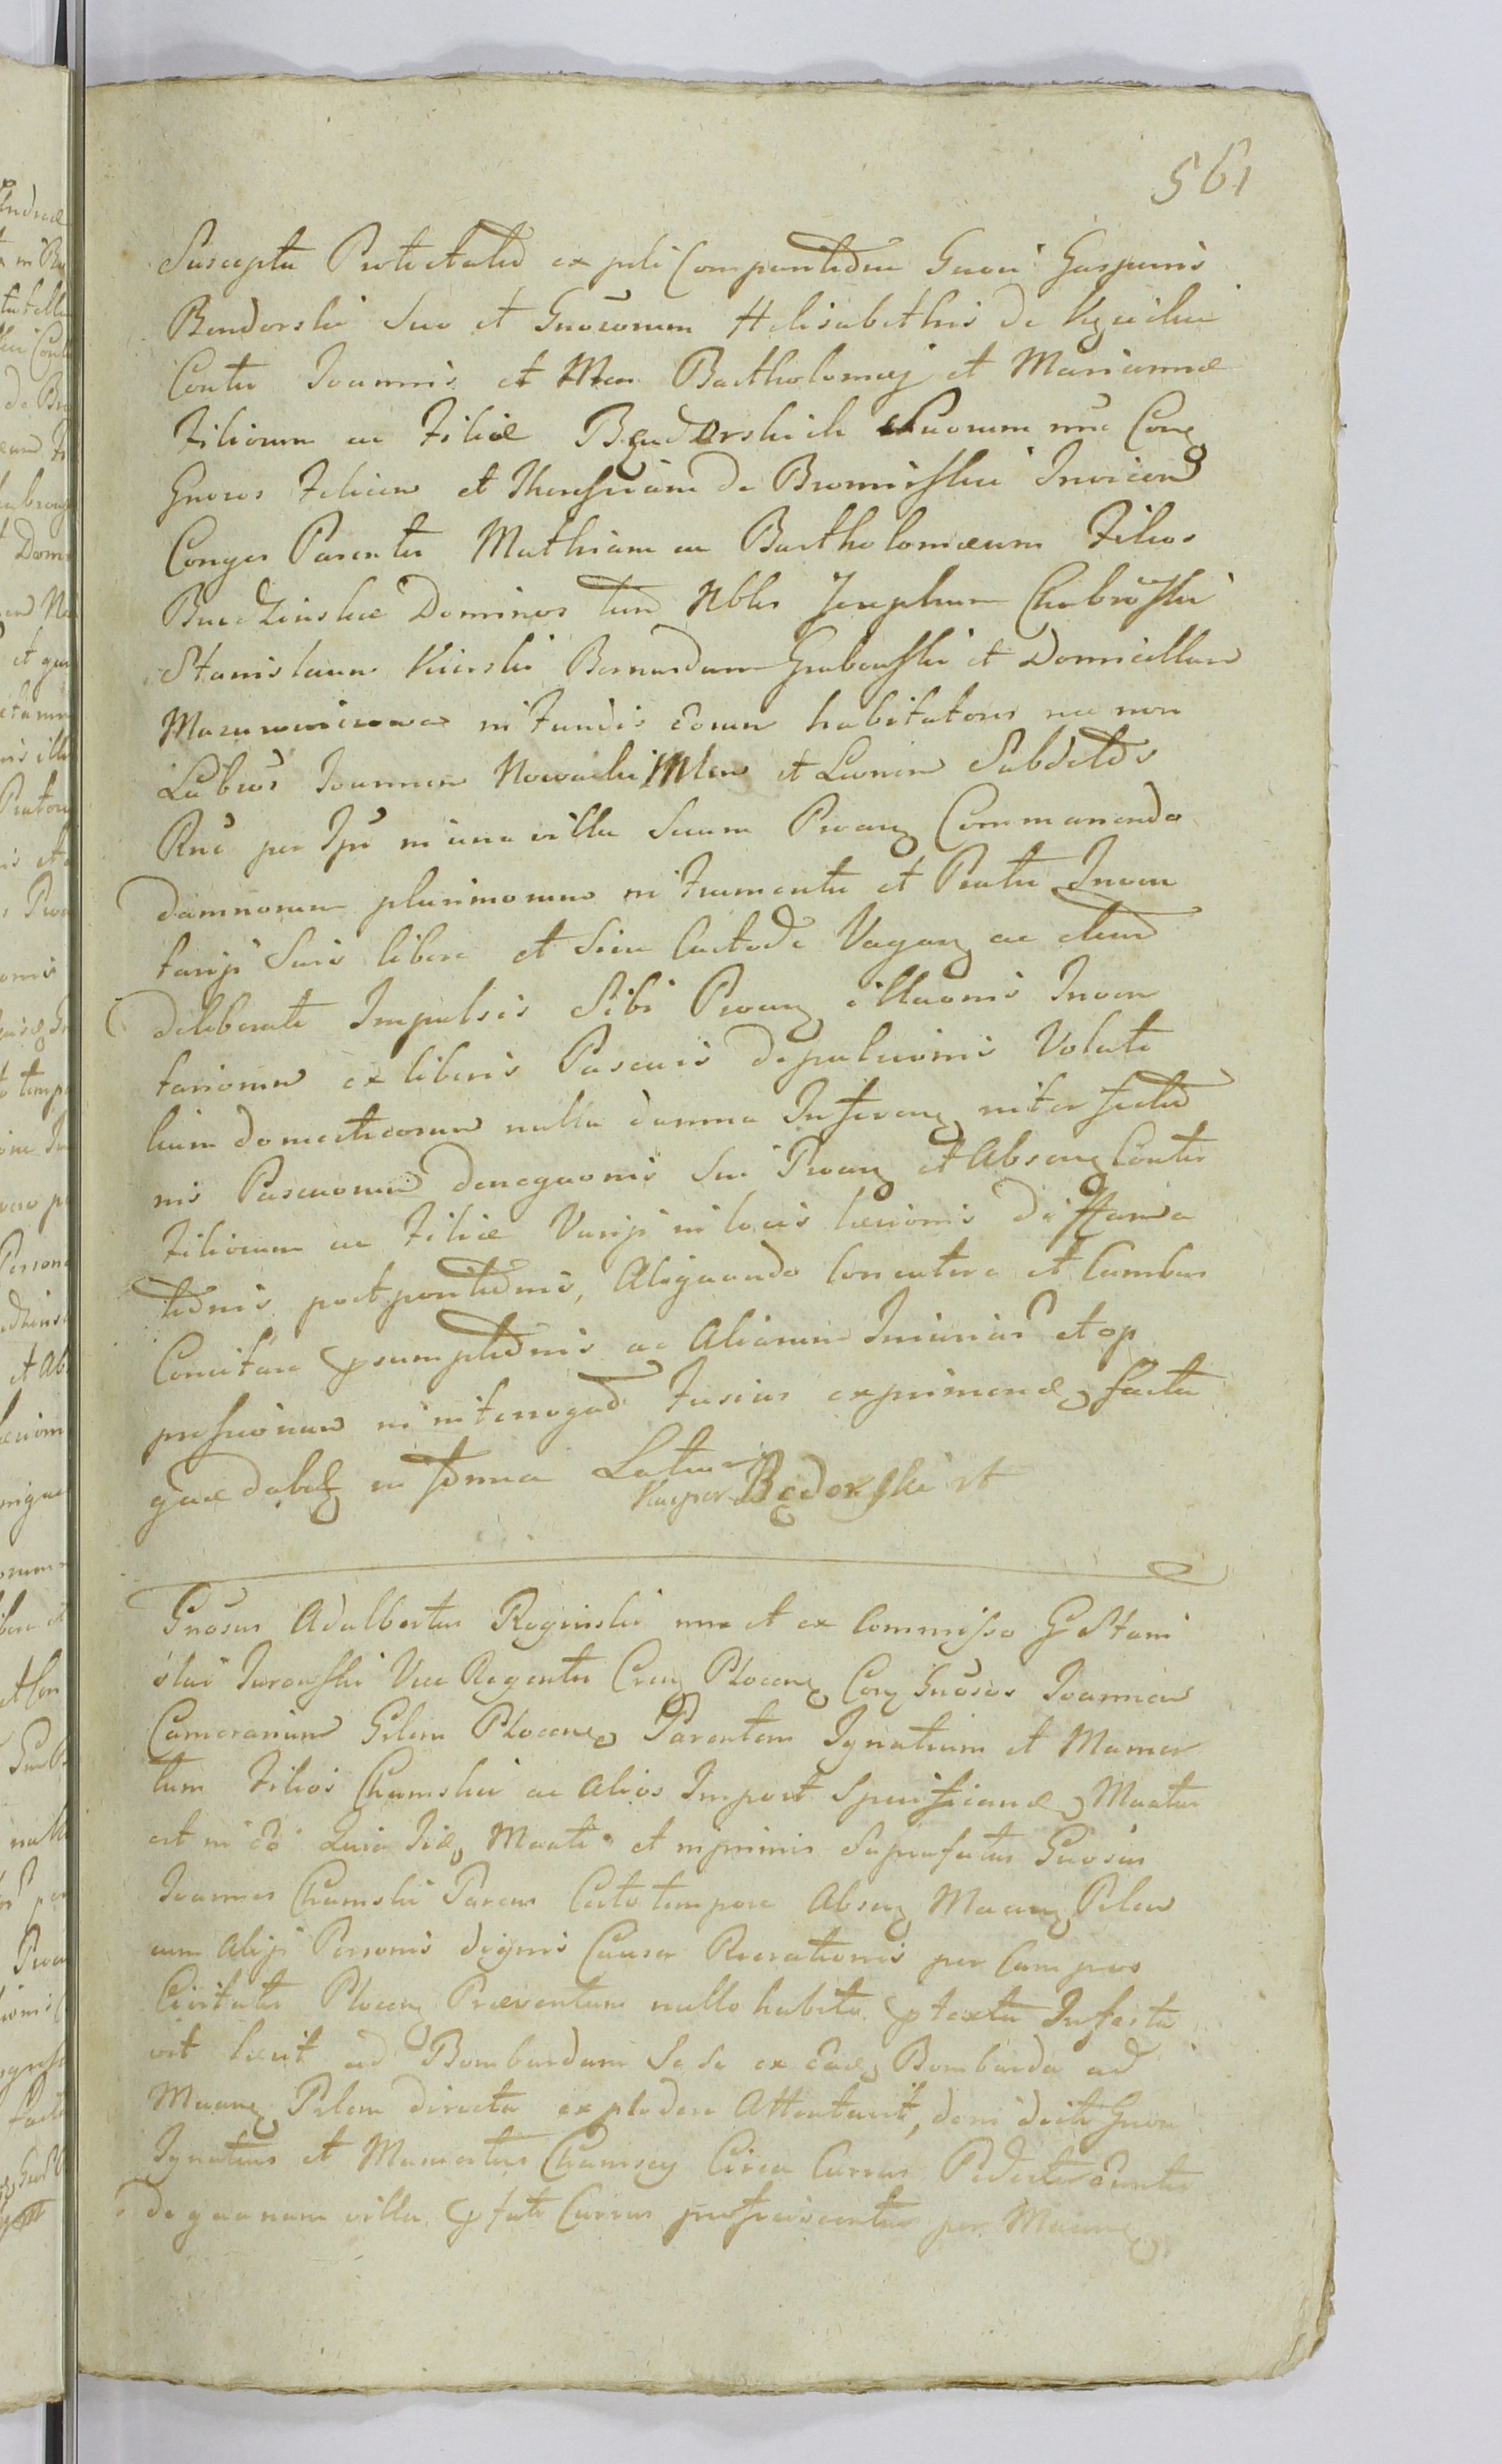 561
Suscepta Protestatio ex psli Comparitione Gnosi Gasparis
Bendorski Suo et Gnosorum Helisabethis de
Contu Joannis et Bartholomej et Marianna
Filiorum ac Filiæ Bendorskich Suorum nne Cone
Gnosos Felicem et Theressiam de Bromirskie Invicem
Conges Parentes Mathiam ac Bartholomæum Filios
Budzinskie Dominos tum Nbles Josephum Chabroski
Stanislaum Kierski Bernardum Grabowski et Domicellam
in fundis Eorum habitatores nec non
Labros Joannem Nowacki et Subditos
per in una villa Secum Proan Commanendo
damnorum plurimorum in frumentis et Pratis Inven
tarijs Suis libere et Sine Custode Vagan ac etiam
deliberate Impulsis Sibi Proan illaonis Inven
tariorum ex liberis Pascuis depulsionis Volati
lium domesticorum nulla damna Inferen interfectio
nis Pascuorum denegaonis Sui Proan et Absen Contis
Filiorum ac Filiæ Varijs in locis læsionis diffama
tionis postpontionis, Aliquando Concutere et Cambus
Concitare psumptionis ac Aliarum Iniuriar et op
pressionum in interrogad fusius exprimend facta
quæ dabit in forma Latius
Kasper Będorski

Gnosus Adalbertus Roginski nne et ex Commisso G Stani
slai Jurowski Vice Regentis Cren Plocen Con Gnosos Joannem
Camerarium Gslem Plocen Parentem Ignatium et Mamer
tum Filios Chamskie ac Alios Import Specificand Mnatus
est in Eo Quia Iid Mnati et inprimis Suprafatus Gnosus
Joannes Chamski Parens Certo tempore Absen Mnan Pslem
cum Alijs Personis dignis Causa Recreationis per Campos
Civitatis Plocen Præeventum nullo habito ptextu Infesta
vit læsit ad Bombardam Se se ex Ead Bombarda ad
Mnan Pslem directa explodere Attentavit, dein dicti Gnosi
Ignatius et Mamertus Chamscy Circa Currum Pedestre Euntes
de quanam villa pfati Currus proficiscentes per Mnan